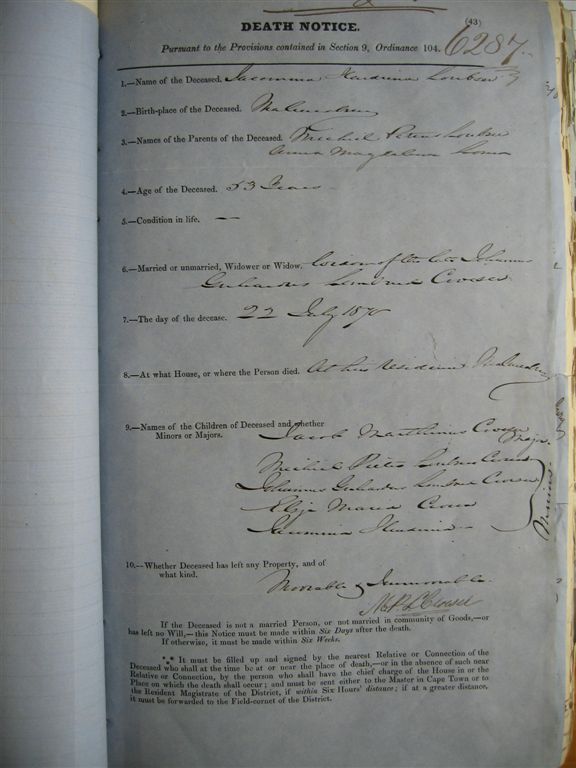 (43)
DEATH NOTICE.
6287
Pursuant to the Provisions contained in Section 9, Ordinance 104.
1.—Name of the Deceased. Jacomina Hendrina
2.—Birth-place of the Deceased. Malmesbury
3.—Names of the Parents of the Deceased. Michiel Pieter
Anna Magdalena
4.—Age of the Deceased. 53 Years
5.—Condition in life. —
6.—Married or unmarried, Widower or Widow. Widow of the late Johannes
7.—The day of the decease. 22 July 1870
8.—At what House, or where the Person died. At his Residence Malmesbury
9.—Names of the Children of Deceased and whether
Minors or Majors. Jacob Marthinus Major
Michiel Pieter
Johannes
Maria
Jacomina Hendrina
Minors
10.—Whether Deceased has left any Property, and of
what kind. Moovable & Immoovable.
If the Deceased is not a married Person, or not married in community of Goods,—or
has left no Will,—this Notice must be made within Six Days after the death.
If otherwise, it must be made within Six Weeks.
*** It must be filled up and signed by the nearest Relative or Connection of the
Deceased who shall at the time be at or near the place of death,—or in the absence of such near
Relative or Connection, by the person who shall have the chief charge of the House in or the
Place on which the death shall occur; and must be sent either to the Master in Cape Town or to
the Resident Magistrate of the District, if within Six Hours' distance; if at a greater distance,
it must be forwarded to the Field-cornet of the District.